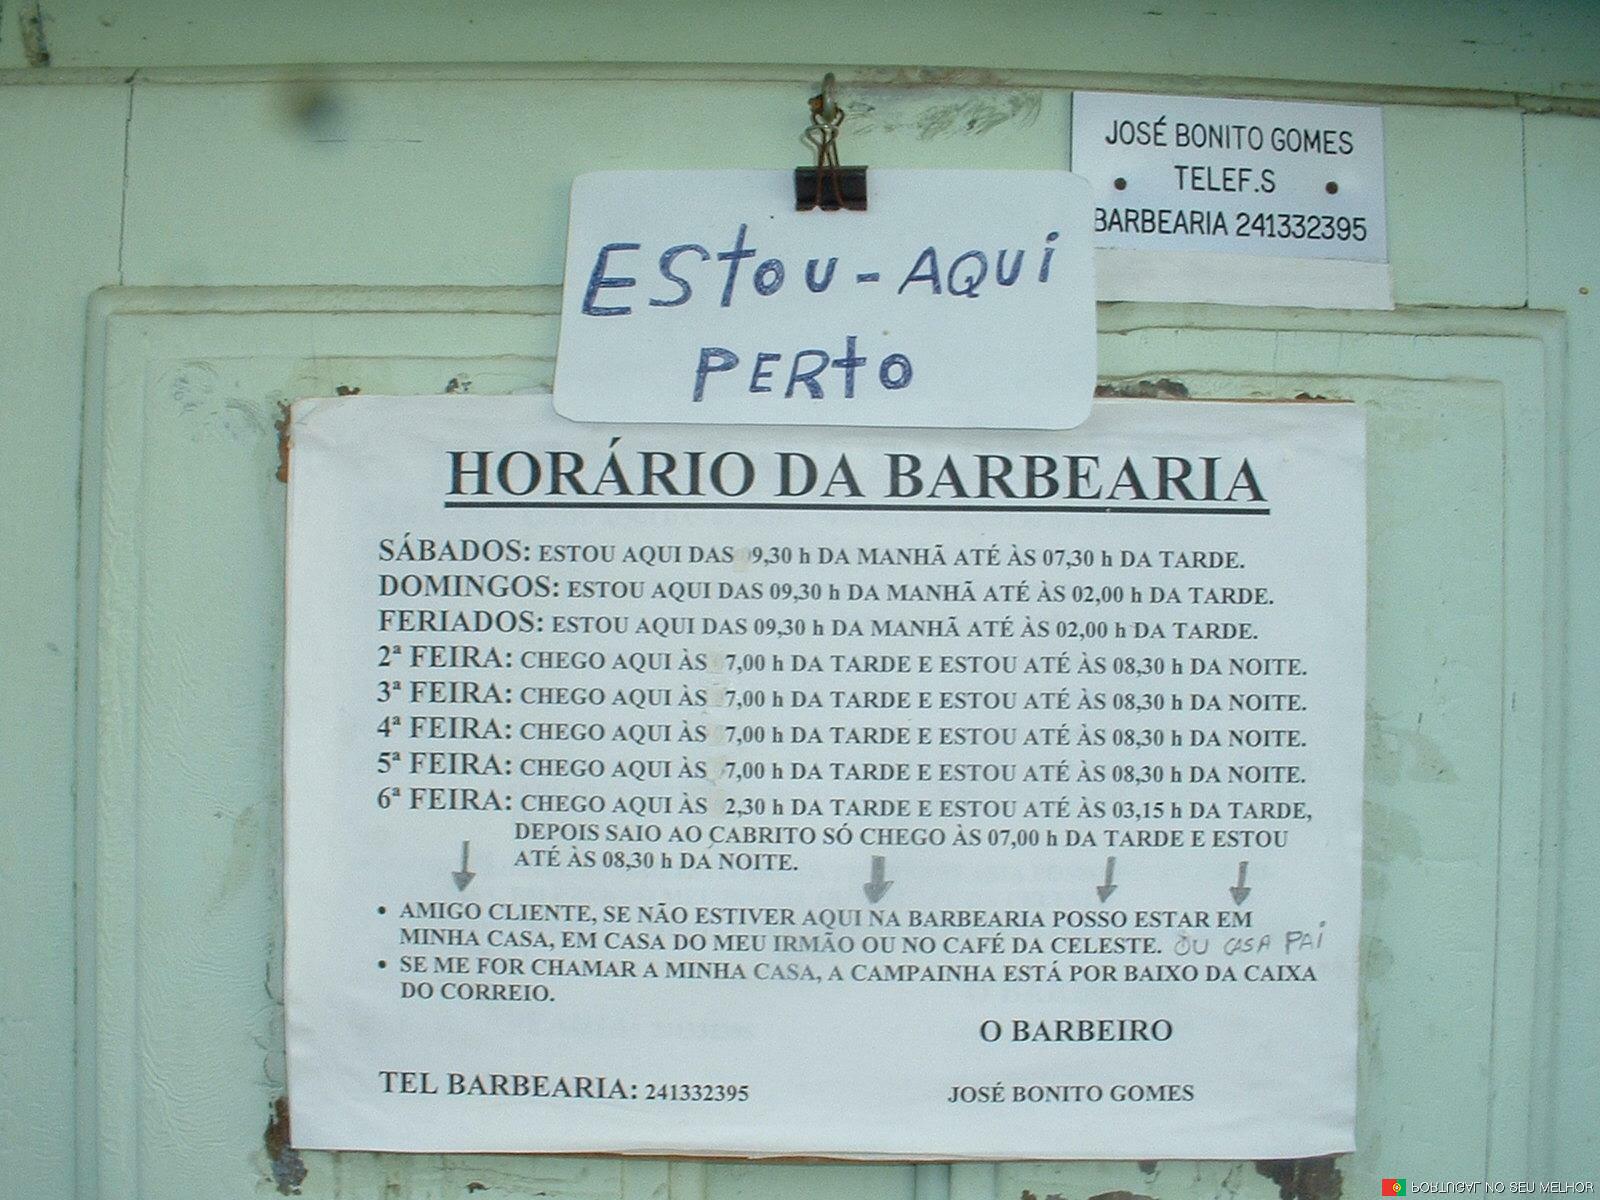 JOSÉ BONITO GOMES
TELEF.S
BARBEARIA 241332395
ESTOU-AQUI
PERTO
HORÁRIO DA BARBEARIA
SÁBADOS: ESTOU AQUI DAS 9,30 h DA MANHÃ ATÉ ÀS 07,30 h DA TARDE.
DOMINGOS: ESTOU AQUI DAS 09,30 h DA MANHÃ ATÉ ÀS 02,00 h DA TARDE.
FERIADOS: ESTOU AQUI DAS 09,30 h DA MANHÃ ATÉ ÀS 02,00 h DA TARDE.
2ª FEIRA: CHEGO AQUI ÀS 7,00 h DA TARDE E ESTOU ATÉ ÀS 08,30 h DA NOITE.
3ª FEIRA: CHEGO AQUI ÀS 7,00 h DA TARDE E ESTOU ATÉ ÀS 08,30 h DA NOITE.
4ª FEIRA: CHEGO AQUI ÀS 7,00 h DA TARDE E ESTOU ATÉ ÀS 08,30 h DA NOITE.
5ª FEIRA: CHEGO AQUI ÀS 7,00 h DA TARDE E ESTOU ATÉ ÀS 08,30 h DA NOITE.
6ª FEIRA: CHEGO AQUI ÀS 2,30 h DA TARDE E ESTOU ATÉ ÀS 03,15 h DA TARDE,
DEPOIS SAIO AO CABRITO SÓ CHEGO ÀS 07,00 h DA TARDE E ESTOU
ATÉ ÀS 08,30 h DA NOITE.
• AMIGO CLIENTE, SE NÃO ESTIVER AQUI NA BARBEARIA POSSO ESTAR EM
MINHA CASA, EM CASA DO MEU IRMÃO OU NO CAFÉ DA CELESTE. OU CASA PAI
• SE ME FOR CHAMAR A MINHA CASA, A CAMPAINHA ESTÁ POR BAIXO DA CAIXA
DO CORREIO.
O BARBEIRO
TEL BARBEARIA: 241332395
JOSÉ BONITO GOMES
PORTUGAL NO SEU MELHOR